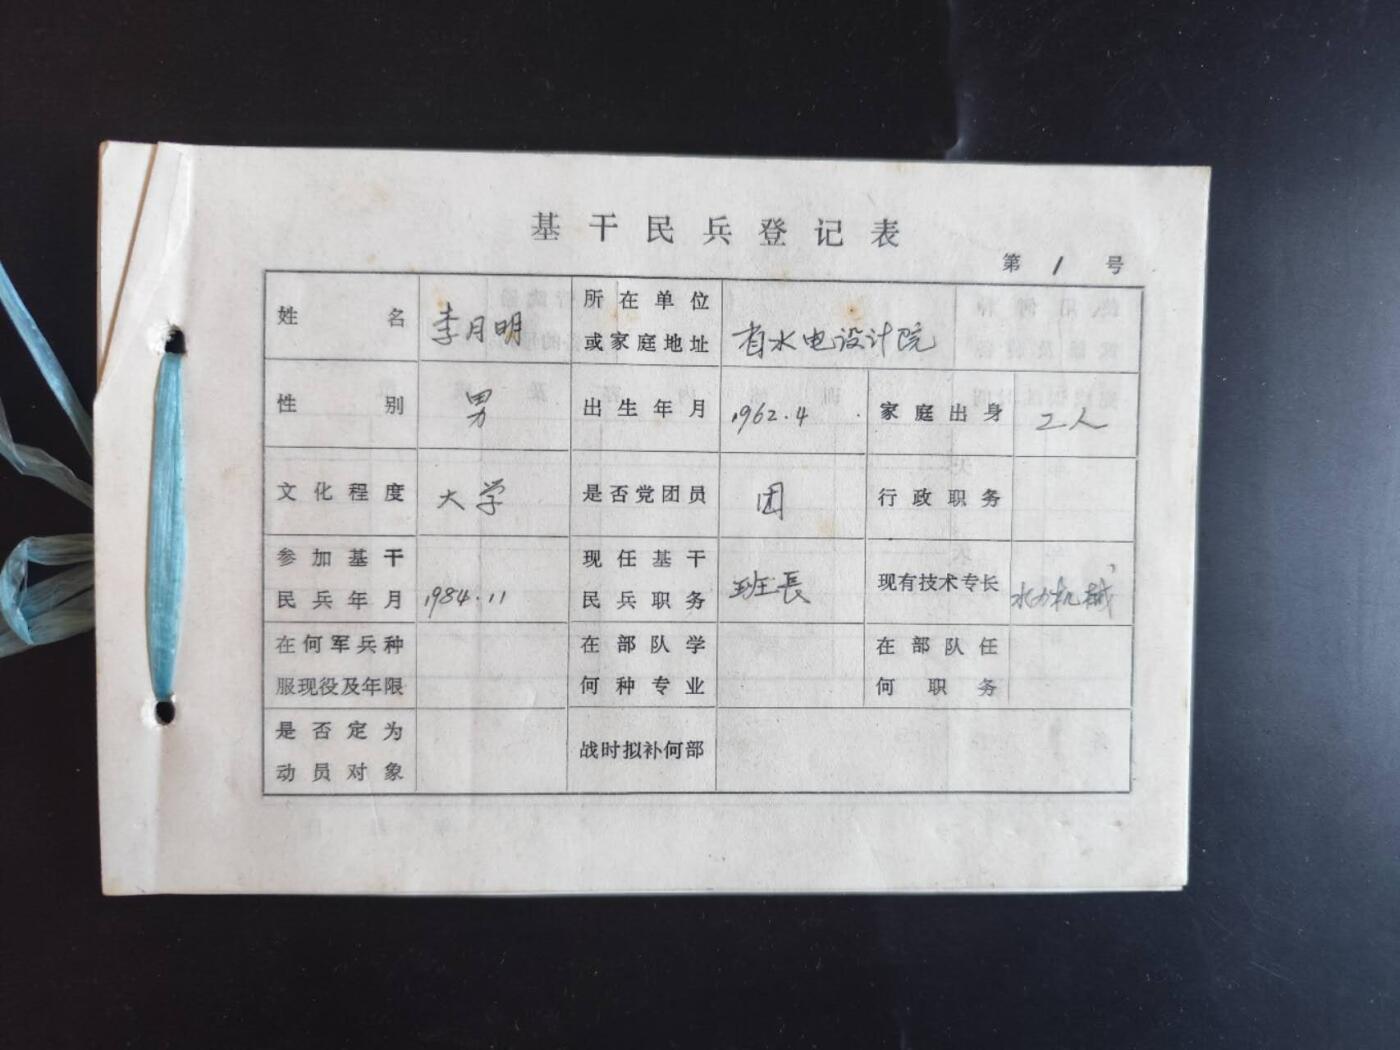 基干民兵登记表
第 1 号
姓名 李月明 所在单位或家庭地址 省水电设计院
性别 男 出生年月 1962.4 家庭出身 工人
文化程度 大学 是否党团员 团 行政职务
参加基干民兵年月 1984.11 现任基干民兵职务 班長 现有技术专长 水力机械
在何军兵种服现役及年限 在部队学何种专业 在部队任何职务
是否定为动员对象 战时拟补何部